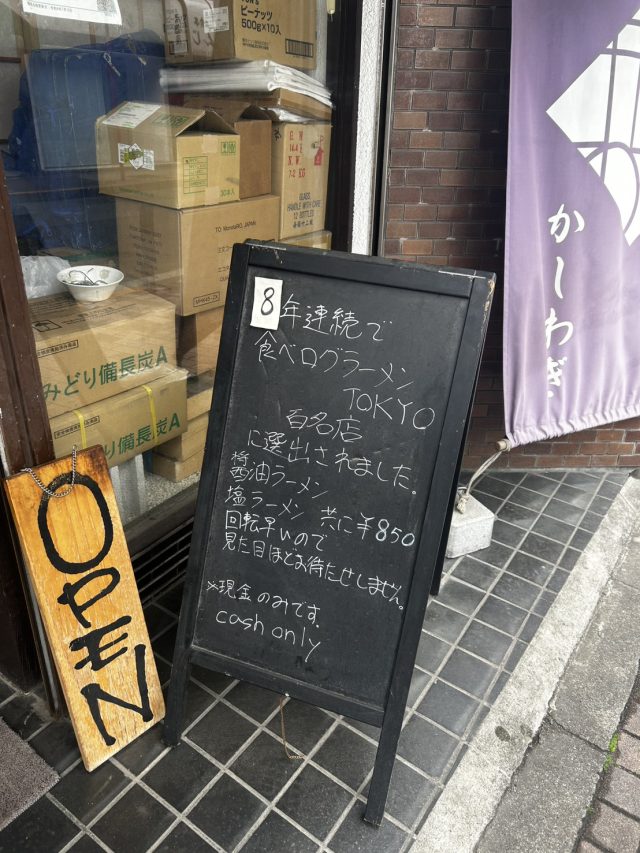 ピーナッツ
500g×10入
30本
TO MonotaRO, JAPAN
HANDLE WITH CARE
12 BOTTLES
みどり備長炭A
みどり備長炭A
OPEN
8年連続で
食べログラーメン
TOKYO
百名店
に選出されました。
醤油ラーメン
塩ラーメン 共に¥850
回転早いので
見た目ほどお待たせしません。
※現金のみです。
cash only
かしわぎ